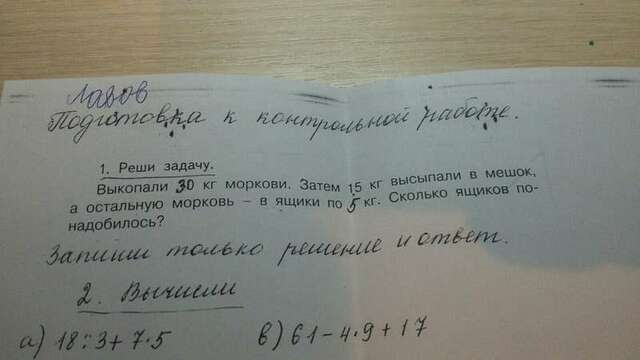 Лазов
Подготовка к контрольной работе.
1. Реши задачу.
Выкопали 30 кг моркови. Затем 15 кг высыпали в мешок,
а остальную морковь – в ящики по 5 кг. Сколько ящиков по-
надобилось?
Запиши только решение и ответ.
2. Вычисли
а) 18:3+7·5 в) 61-4·9+17